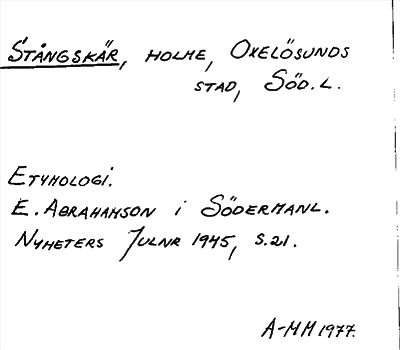 STÅNGSKÄR, HOLME, OXELÖSUNDS
STAD, SÖD.L.
ETYMOLOGI.
E. ABRAHAMSON i SÖDERMANL.
NYHETERS JULNR 1945, S.21.
A-MM 1977.